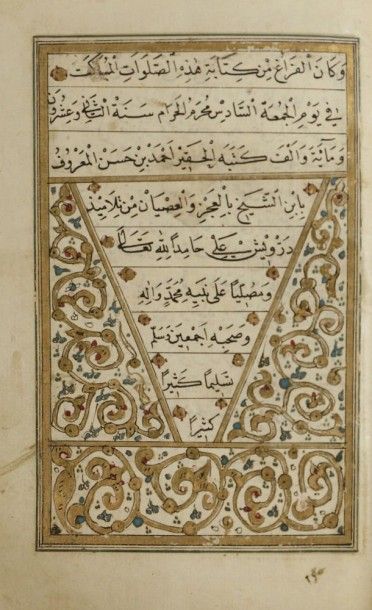 وكان الفراغ من كتابة هذه الصلوات المباركت
في يوم الجمعة السادس محرم الحرام سنة الثاني وعشرون
ومائة والف كتبه الحقير احمد بن حسن المعروف
بابن الشيخ بالعجز والعصيان من تلاميذ
درويش علي حامداً لله تعالى
ومصلياً على نبيه محمد واله
وصحبه اجمعين وسلم
تسليماً كثيراً
كثيراً